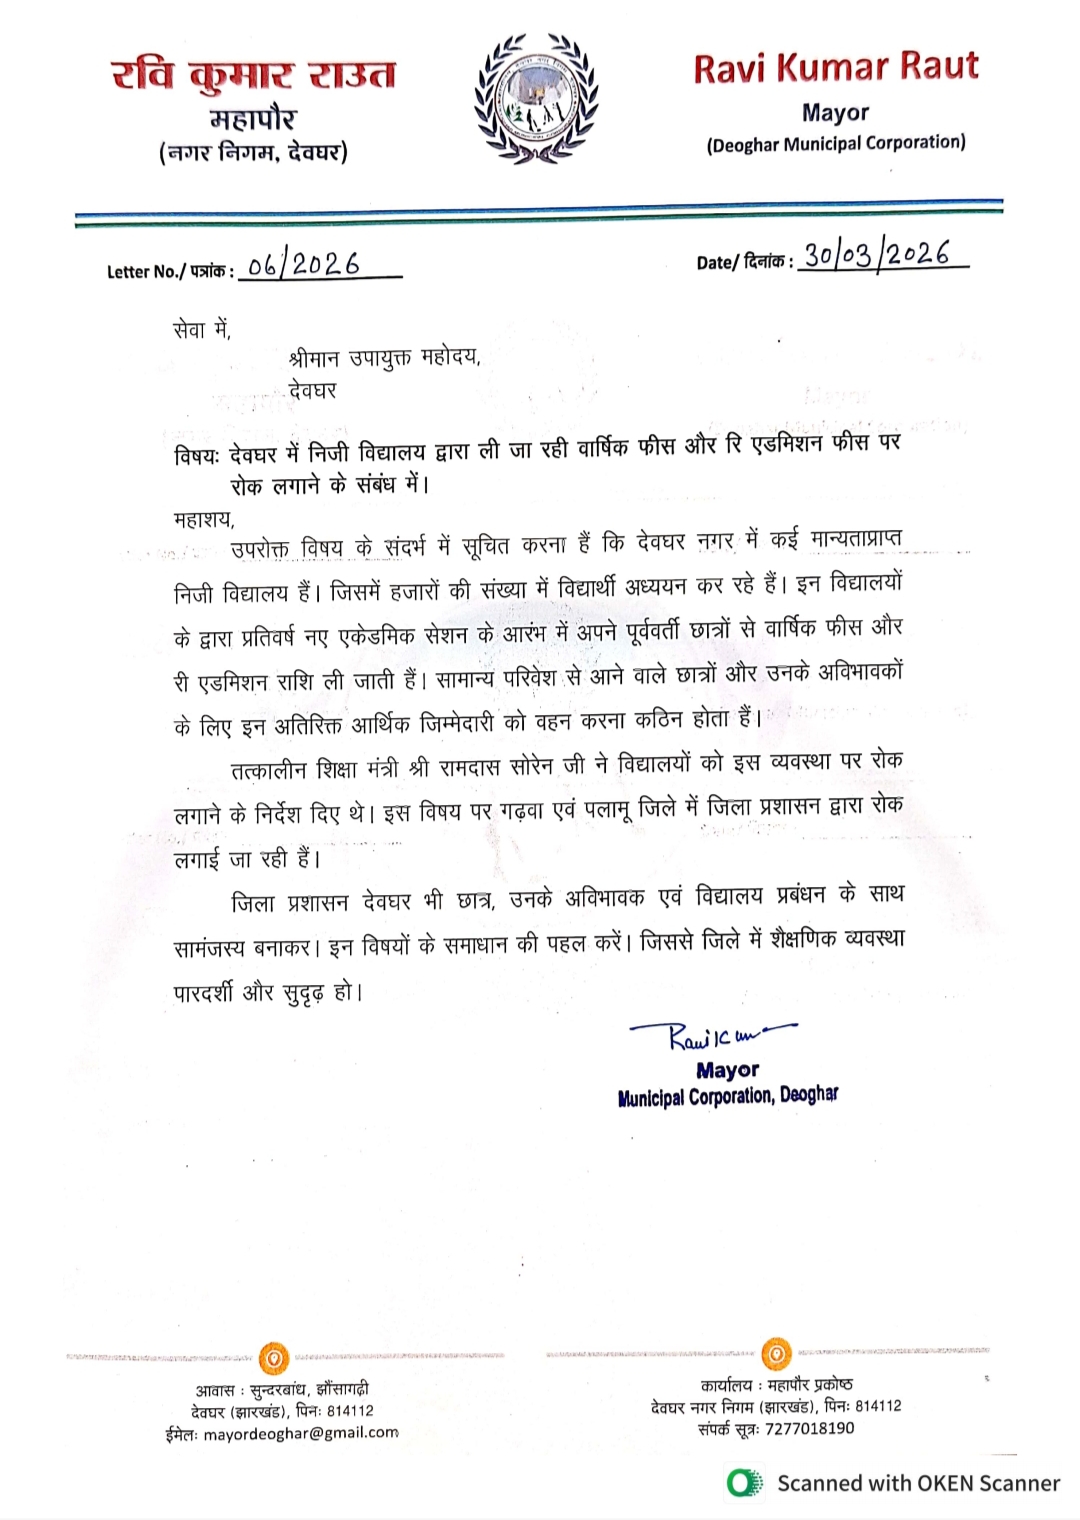 रवि कुमार राउत
महापौर
(नगर निगम, देवघर)
Ravi Kumar Raut
Mayor
(Deoghar Municipal Corporation)
Letter No./ पत्रांक : 06/2026
Date/ दिनांक : 30/03/2026
सेवा में,
श्रीमान उपायुक्त महोदय,
देवघर
विषयः देवघर में निजी विद्यालय द्वारा ली जा रही वार्षिक फीस और रि एडमिशन फीस पर
रोक लगाने के संबंध में।
महाशय,
उपरोक्त विषय के संदर्भ में सूचित करना हैं कि देवघर नगर में कई मान्यताप्राप्त
निजी विद्यालय हैं। जिसमें हजारों की संख्या में विद्यार्थी अध्ययन कर रहे हैं। इन विद्यालयों
के द्वारा प्रतिवर्ष नए एकेडमिक सेशन के आरंभ में अपने पूर्ववर्ती छात्रों से वार्षिक फीस और
री एडमिशन राशि ली जाती हैं। सामान्य परिवेश से आने वाले छात्रों और उनके अविभावकों
के लिए इन अतिरिक्त आर्थिक जिम्मेदारी को वहन करना कठिन होता हैं।
तत्कालीन शिक्षा मंत्री श्री रामदास सोरेन जी ने विद्यालयों को इस व्यवस्था पर रोक
लगाने के निर्देश दिए थे। इस विषय पर गढ़वा एवं पलामू जिले में जिला प्रशासन द्वारा रोक
लगाई जा रही हैं।
जिला प्रशासन देवघर भी छात्र, उनके अविभावक एवं विद्यालय प्रबंधन के साथ
सामंजस्य बनाकर। इन विषयों के समाधान की पहल करें। जिससे जिले में शैक्षणिक व्यवस्था
पारदर्शी और सुदृढ़ हो।
Ravi Kum
Mayor
Municipal Corporation, Deoghar
आवास : सुन्दरबांध, झौंसागढ़ी
देवघर (झारखंड), पिनः 814112
ईमेलः mayordeoghar@gmail.com
कार्यालय : महापौर प्रकोष्ठ
देवघर नगर निगम (झारखंड), पिनः 814112
संपर्क सूत्रः 7277018190
Scanned with OKEN Scanner